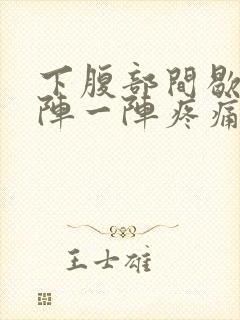 下腹部間歇
陣一陣疼痛
王士雄